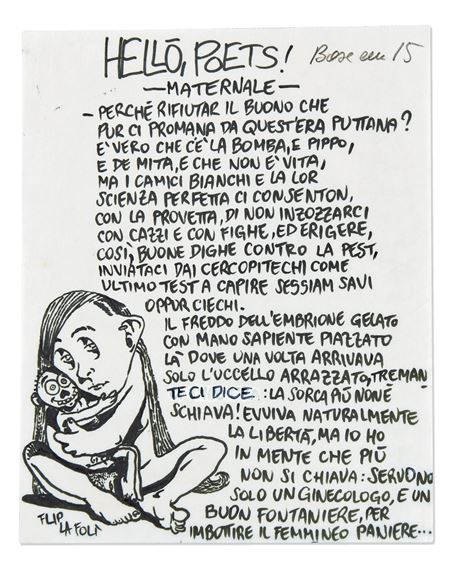 HELLŌ, POETS!
Base cm 15
—MATERNALE—
- PERCHÉ RIFIUTAR IL BUONO CHE
PUR CI PROMANA DA QUEST'ERA PUTTANA?
E' VERO CHE C'È LA BOMBA, E PIPPO,
E DE MITA, E CHE NON È VITA,
MA I CAMICI BIANCHI E LA LOR
SCIENZA PERFETTA CI CONSENTON,
CON LA PROVETTA, DI NON INZOZZARCI
CON CAZZI E CON FIGHE, ED ERIGERE,
COSÌ, BUONE DIGHE CONTRO LA PEST,
INVIATACI DAI CERCOPITECHI COME
ULTIMO TEST A CAPIRE SESSIAM SAVI
OPPUR CIECHI.
IL FREDDO DELL'EMBRIONE GELATO
CON MANO SAPIENTE PIAZZATO
LÀ DOVE UNA VOLTA ARRIVAVA
SOLO L'UCCELLO ARRAZZATO, TREMAN
TE CI DICE: LA SORCA PIÙ NON È
SCHIAVA! EVVIVA NATURALMENTE
LA LIBERTÀ, MA IO HO
IN MENTE CHE PIÙ
NON SI CHIAVA: SERVONO
SOLO UN GINECOLOGO, E UN
BUON FONTANIERE, PER
IMBOTTIRE IL FEMMINEO PANIERE...
FILIP
LA FOLA